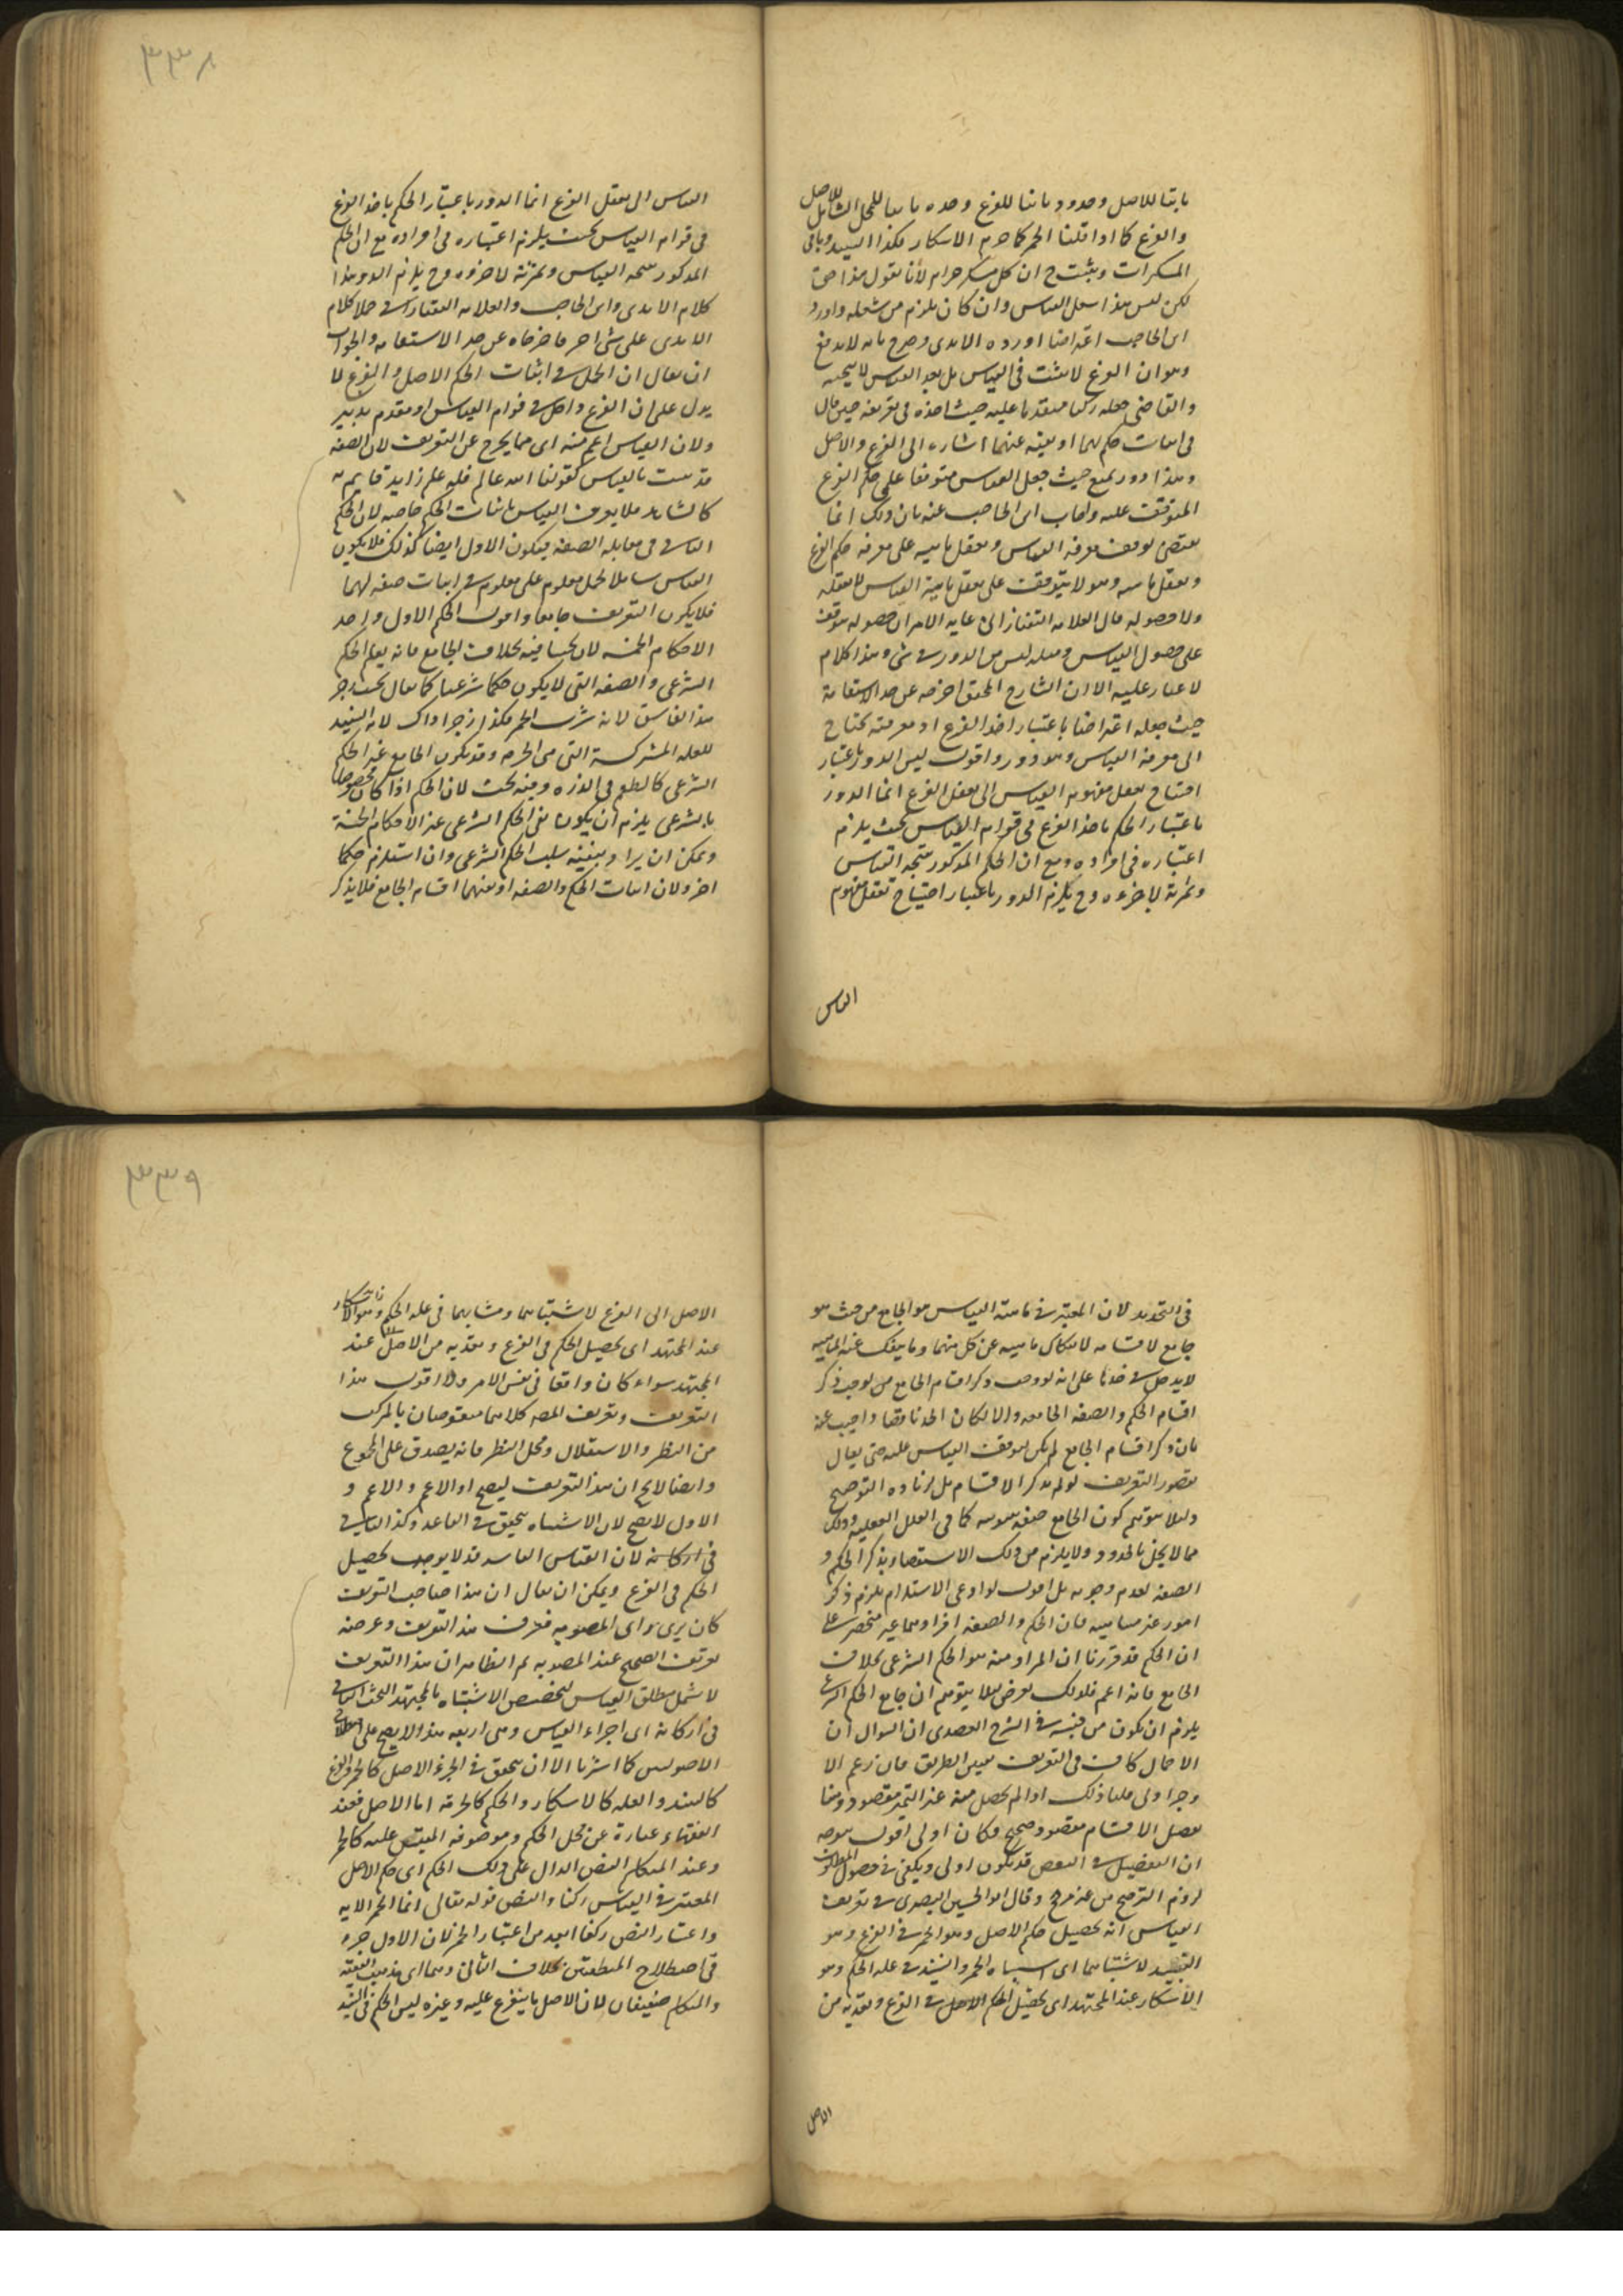 ثابتا للاصل وحده وثابتا للفرع وحده ثابتا للمحل الشامل للاصل
والفرع كما اذا قلنا الخمر كما حرم الاسكار فكذا النبيذ وباقى
المسكرات ويثبت ح ان كل مسكر حرام لأنا نقول هذا حق
لكن ليس هذا القياس وان كان يلزم من شمله واورد
ابن الحاجب اعتراضا اورده الامدى وصرح بانه لا يدفع
وهو ان الفرع لا يثبت فى القياس بل بعد القياس لا صحبه
والقاضى جعله ركنا متقدما عليه حيث اخذه فى تعريفه حين قال
فى اثبات حكم لهما او نفيه عنهما اشارة الى الفرع والاصل
وهذا دور يمتنع حيث جعل القياس متوقفا على حكم الفرع
المتوقف عليه واجاب ابن الحاجب عنه بان ذلك انما
يقتضى توقف معرفة القياس وتعقل ماهيته على معرفة حكم الفرع
وتعقل ماهيته وهو لا يتوقف على تعقل ماهية القياس لا تعقله
ولا حصوله قال العلامة التفتازانى غاية الامر ان حصوله متوقف
على حصول القياس ومثله ليس من الدور فى شئ وهذا كلام
لا غبار عليه الا ان الشارح المحقق اخرجه عن حد الاستقامة
حيث جعله اعتراضا باعتبار اخذ الفرع او معرفته يحتاج
الى معرفة القياس وهو دور واقول ليس الدور باعتبار
احتياج تعقل مفهوم القياس الى تعقل الفرع انما الدور
باعتبار الحكم باخذ الفرع فى قوام القياس بحيث يلزم
اعتباره فى افراده ومع ان الحكم المذكور نتيجة القياس
وثمرته لا جزءه وح يلزم الدور باعتبار احتياج تعقل مفهوم
القياس
٣٣٨
القياس الى تعقل الفرع انما الدور باعتبار الحكم باخذ الفرع
فى قوام القياس بحيث يلزم اعتباره فى افراده مع ان الحكم
المذكور نتيجة القياس وثمرته لا جزءه وح يلزم الدور هذا
كلام الامدى وابن الحاجب والعلامة التفتازانى حملا كلام
الامدى على شئ اخر فاخرجاه عن حد الاستقامة والجواب
ان يقال ان الحمل فى اثبات الحكم الاصل والفرع لا
يدل على ان الفرع داخل فى قوام القياس او مقدم تدبر
ولان القياس اعم منه اى مما يخرج عن التعريف لان الصفة
قد تثبت بالقياس كقولنا الله عالم فله علم زايد قايم به
كالشاهد فلا يعرف القياس باثبات الحكم خاصة لان الحكم
الثانى فى مقابلة الصفة فيكون الاول ايضا كذلك فلا يكون
القياس شاملا لحمل معلوم على معلوم فى اثبات صفة لهما
فلا يكون التعريف جامعا واقول الحكم الاول واحد
الاحكام الخمسة لان بحثنا فيه بخلاف الجامع فانه يعم الحكم
الشرعى والصفة التى لا يكون حكما شرعيا كما يقال بحث زجر
هذا الفاسق لانه شرب الخمر فكذا زجر اذاك لانه النبيذ
للعلة المشتركة التى هى الحرمة وقد يكون الجامع غير الحكم
الشرعى كالطعم فى الذرة وفيه بحث لان الحكم اذا كان مخصوصا
بالشرعى يلزم ان يكون نفى الحكم الشرعى غير الاحكام الخمسة
ويمكن ان يراد بنفيه سلب الحكم الشرعى وان استلزم حكما
اخر ولان اثبات الحكم والصفة او نفيهما اقسام الجامع فلا يذكر
فى التحديد لان المعتبر فى ماهية القياس هو الجامع من حيث هو
جامع لا اقسامه لانفكاك ماهيته عن كل منهما وما ينفك عنه الماهية
لا يدخل فى حدها على انه لو وجب ذكر اقسام الجامع لوجب ذكر
اقسام الحكم والصفة الجامعة والا لكان الحد ناقصا واجيب عنه
بان ذكر اقسام الجامع لم يكن لتوقف القياس عليه حتى يقال
بقصور التعريف لو لم يذكر الاقسام بل لزيادة التوضيح
ولئلا يتوهم كون الجامع صفة ثبوتية كما فى العلل العقلية وذلك
مما لا يخل بالحدود ولا يلزم من ذلك الاستقصاء بذكر الحكم و
الصفة لعدم وجوبه بل اقول لو ادعى الاستلزام يلزم ذكر
امور غير متناهية فان الحكم والصفة افرادهما غير منحصر على
ان الحكم قد قررنا ان المراد منه هو الحكم الشرعى بخلاف
الجامع فانه اعم فلذلك تعرض لئلا يتوهم ان جامع الحكم الشرعى
يلزم ان يكون من جنسه فى الشرح العضدى ان السوال ان
الاجمال كاف فى التعريف تعيين الطريق فان زعم الا
وجزا ولى قلنا ذلك اذا لم يحصل منه غير التميز مقصود وهنا
تفصيل الاقسام مقصود صحيح فكان اولى اقول توجيه
ان التفضيل فى البعض قد يكون اولى ويكفى فى حصول المطلوب
لزوم الترجيح من غير مرجح وقال ابو الحسين البصرى فى تعريف
القياس انه تحصيل حكم الاصل وهو الخمر فى الفرع وهو
النبيذ لاشتباههما اى اشتباه الخمر والنبيذ فى علة الحكم وهو
الاسكار عند المجتهد اى تحصيل الحكم الاصل فى الفرع وتعديه من
الاصل
٣٣٩
الاصل الى الفرع لاشتباههما ومشابهما فى علة الحكم وهو الاسكار
عند المجتهد اى تحصيل الحكم فى الفرع وتعديه من الاصل عند
المجتهد سواء كان واقعا فى نفس الامر ولا اقول هذا
التعريف وتعريف المصه كلاهما منقوضان بالمركب
من النظر والاستقلال ومحل النظر فانه يصدق على المجموع
وايضا لا يخ ان هذا التعريف ليصح او الاعم والاعم و
الاول لا يصح لان الاشتباه يتحقق فى القاعد وكذا الثانى
فى اركانه لان القياس الفاسد قد لا يوجب تحصيل
الحكم فى الفرع ويمكن ان يقال ان هذا صاحب التعريف
كان يرى راى المصوبة فعرف هذا التعريف وغرضه
تعريف الصحيح عند المصوبة ثم الظاهر ان هذا التعريف
لا يشمل مطلق القياس لتخصيص الاشتباه بالمجتهد البحث الثانى
فى اركانه اى اجزاء القياس وهى اربعة هذا لا يصح على اصطلاح
الاصوليين كما اشرنا الا ان يتحقق فى الجزء الاصل كالخمر والفرع
كالنبيذ والعلة كالاسكار والحكم كالحرمة اما الاصل فعند
الفقهاء عبارة عن محل الحكم وموصوفه المقيس عليه كالخمر
وعند المتكلم النص الدال على ذلك الحكم اى حكم الاصل
المعتبر فى القياس ركنا والنص قوله تعالى انما الخمر الاية
واعتبار النص ركنا ابعد من اعتبار الخمر لان الاول جزء
فى اصطلاح المنطقيين بخلاف الثانى وهما اى مذهب الفقيه
والمتكلم ضعيفان لان الاصل ما يتفرع عليه وغيره ليس الحكم فى النبيذ